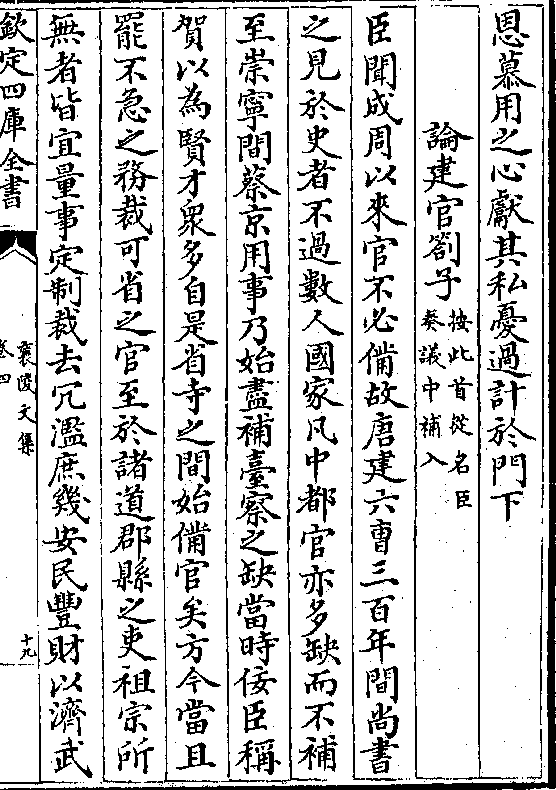 恩慕用之心獻其私憂過計於門下
論建官劄子按此首從名臣
奏議中補入
臣聞成周以來官不必備故唐建六曹三百年間尚書
之見於史者不過數人國家凡中都官亦多缺而不補
至崇寧間蔡京用事乃始盡補臺察之缺當時佞臣稱
賀以為賢才衆多自是省寺之間始備官矣方今當且
罷不急之務裁可省之官至於諸道郡縣之吏祖宗所
無者皆宜量事定制裁去冗濫庶幾安民豐財以濟武
欽定四庫全書
襄陵文集
卷四
十九